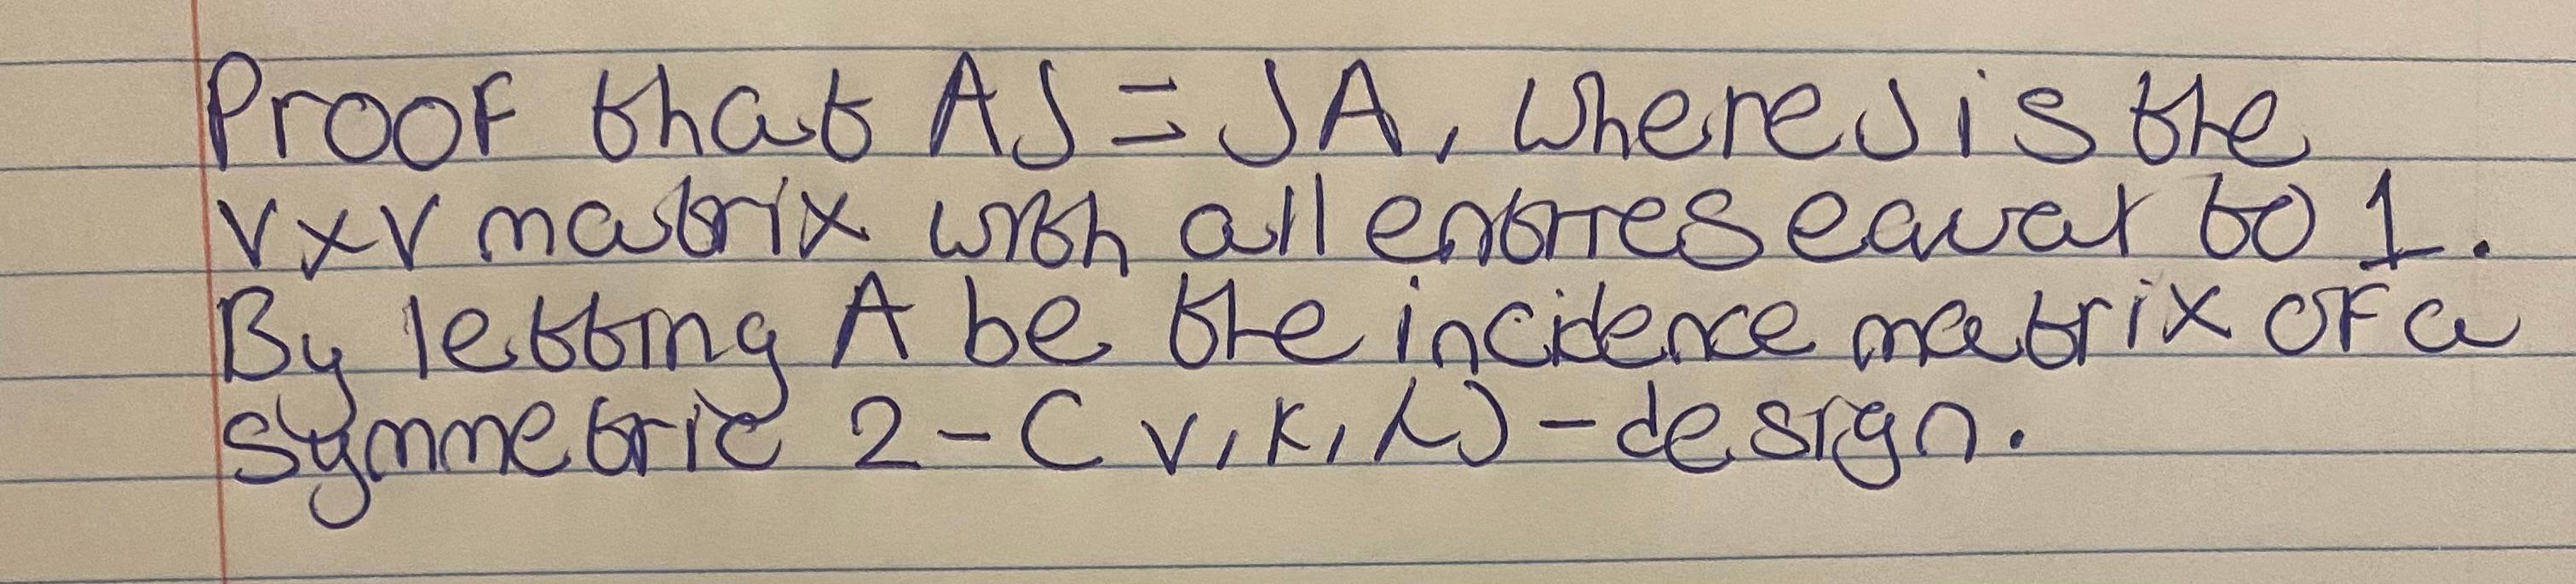 Proof that AJ = JA, where J is the
v x v matrix with all entries equal to 1.
By letting A be the incidence matrix of a
symmetric 2-(v,k,λ)-design.